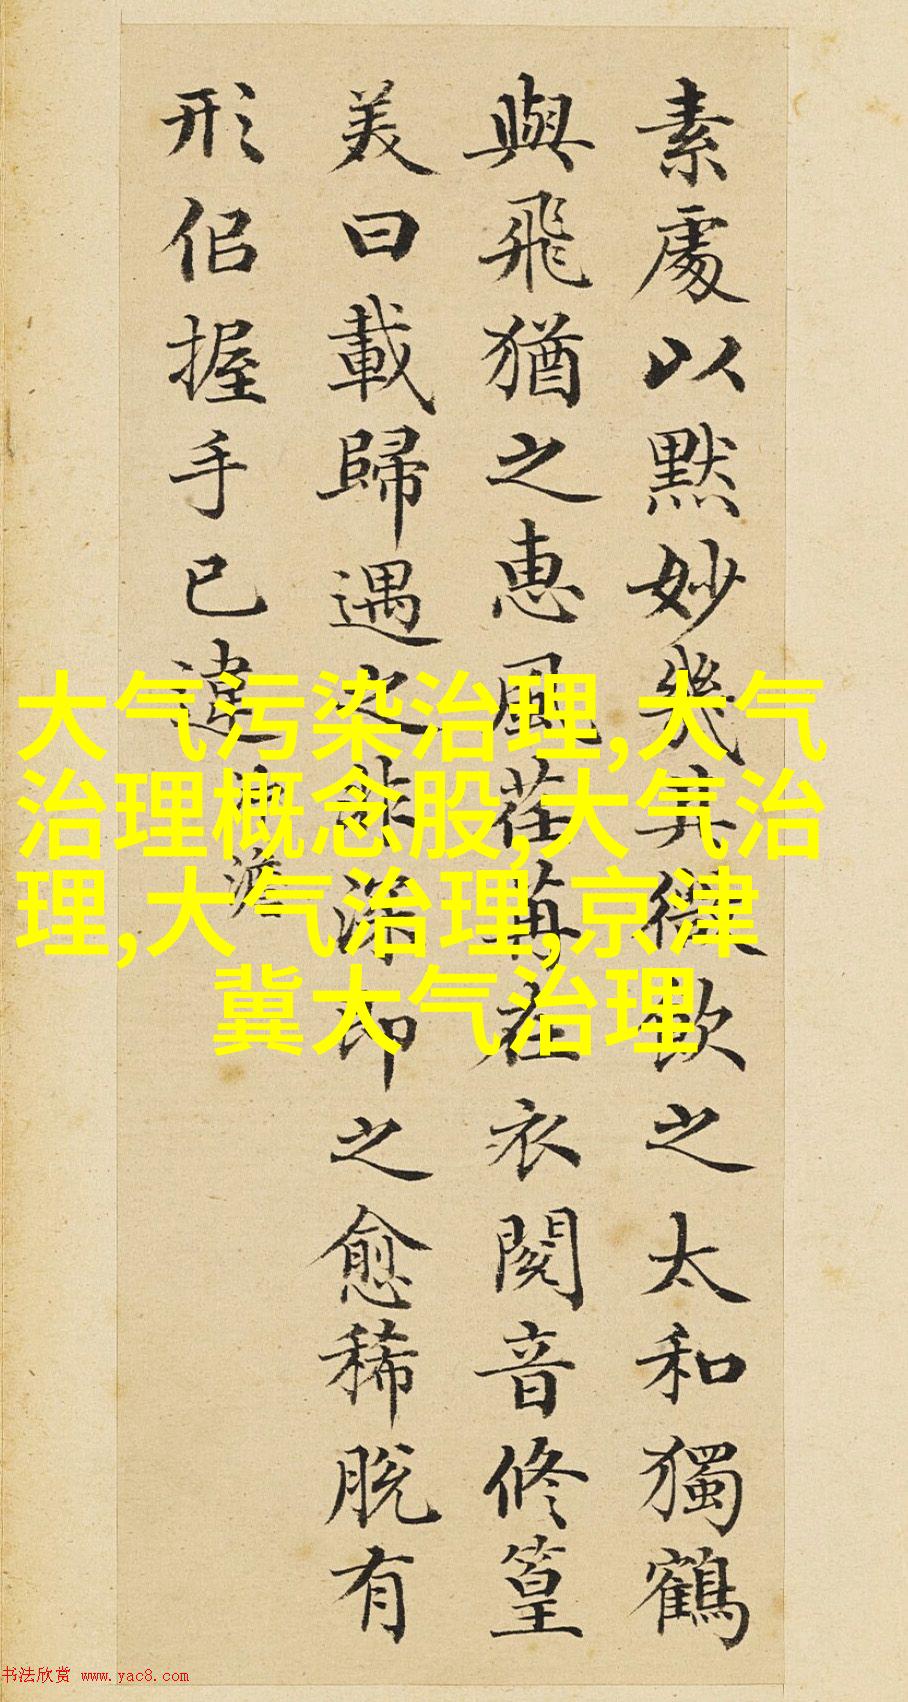 素處以默妙幾其微飲之太和獨鶴
與飛猶之惠風荏苒在衣閱音修篁
美曰載歸遇之深即之愈稀脫有
形佀握手已違
沖澹
大气污染治理,大气
治理概念股,大气治
理,大气治理,京津
冀大气治理
书法欣赏 www.yac8.com